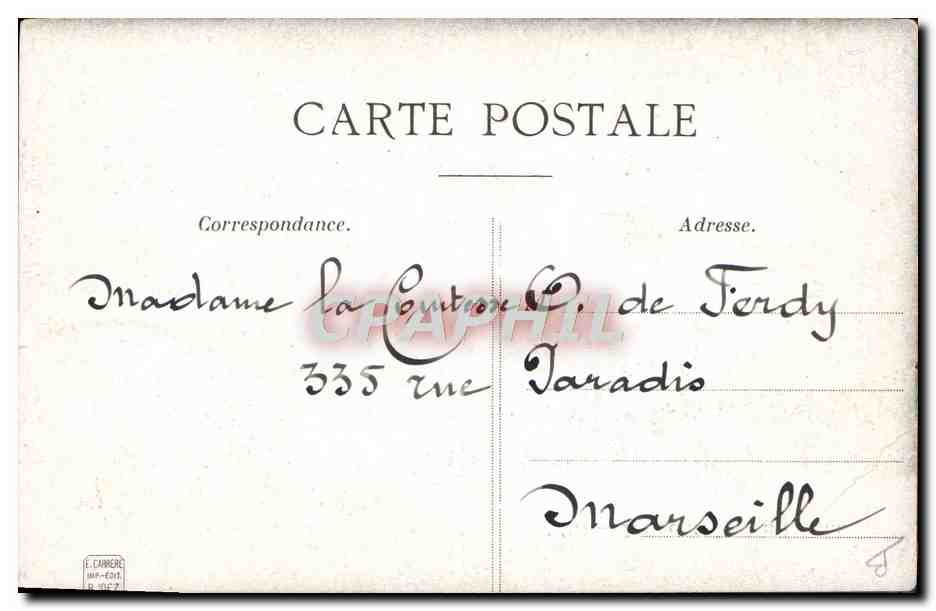 CARTE POSTALE
Correspondance.
Adresse.
Madame la Comtesse C. de Ferdy
CPAPHIL
335 rue Paradis
Marseille
E. CARRERE
IMP.-EDIT.
RODEZ